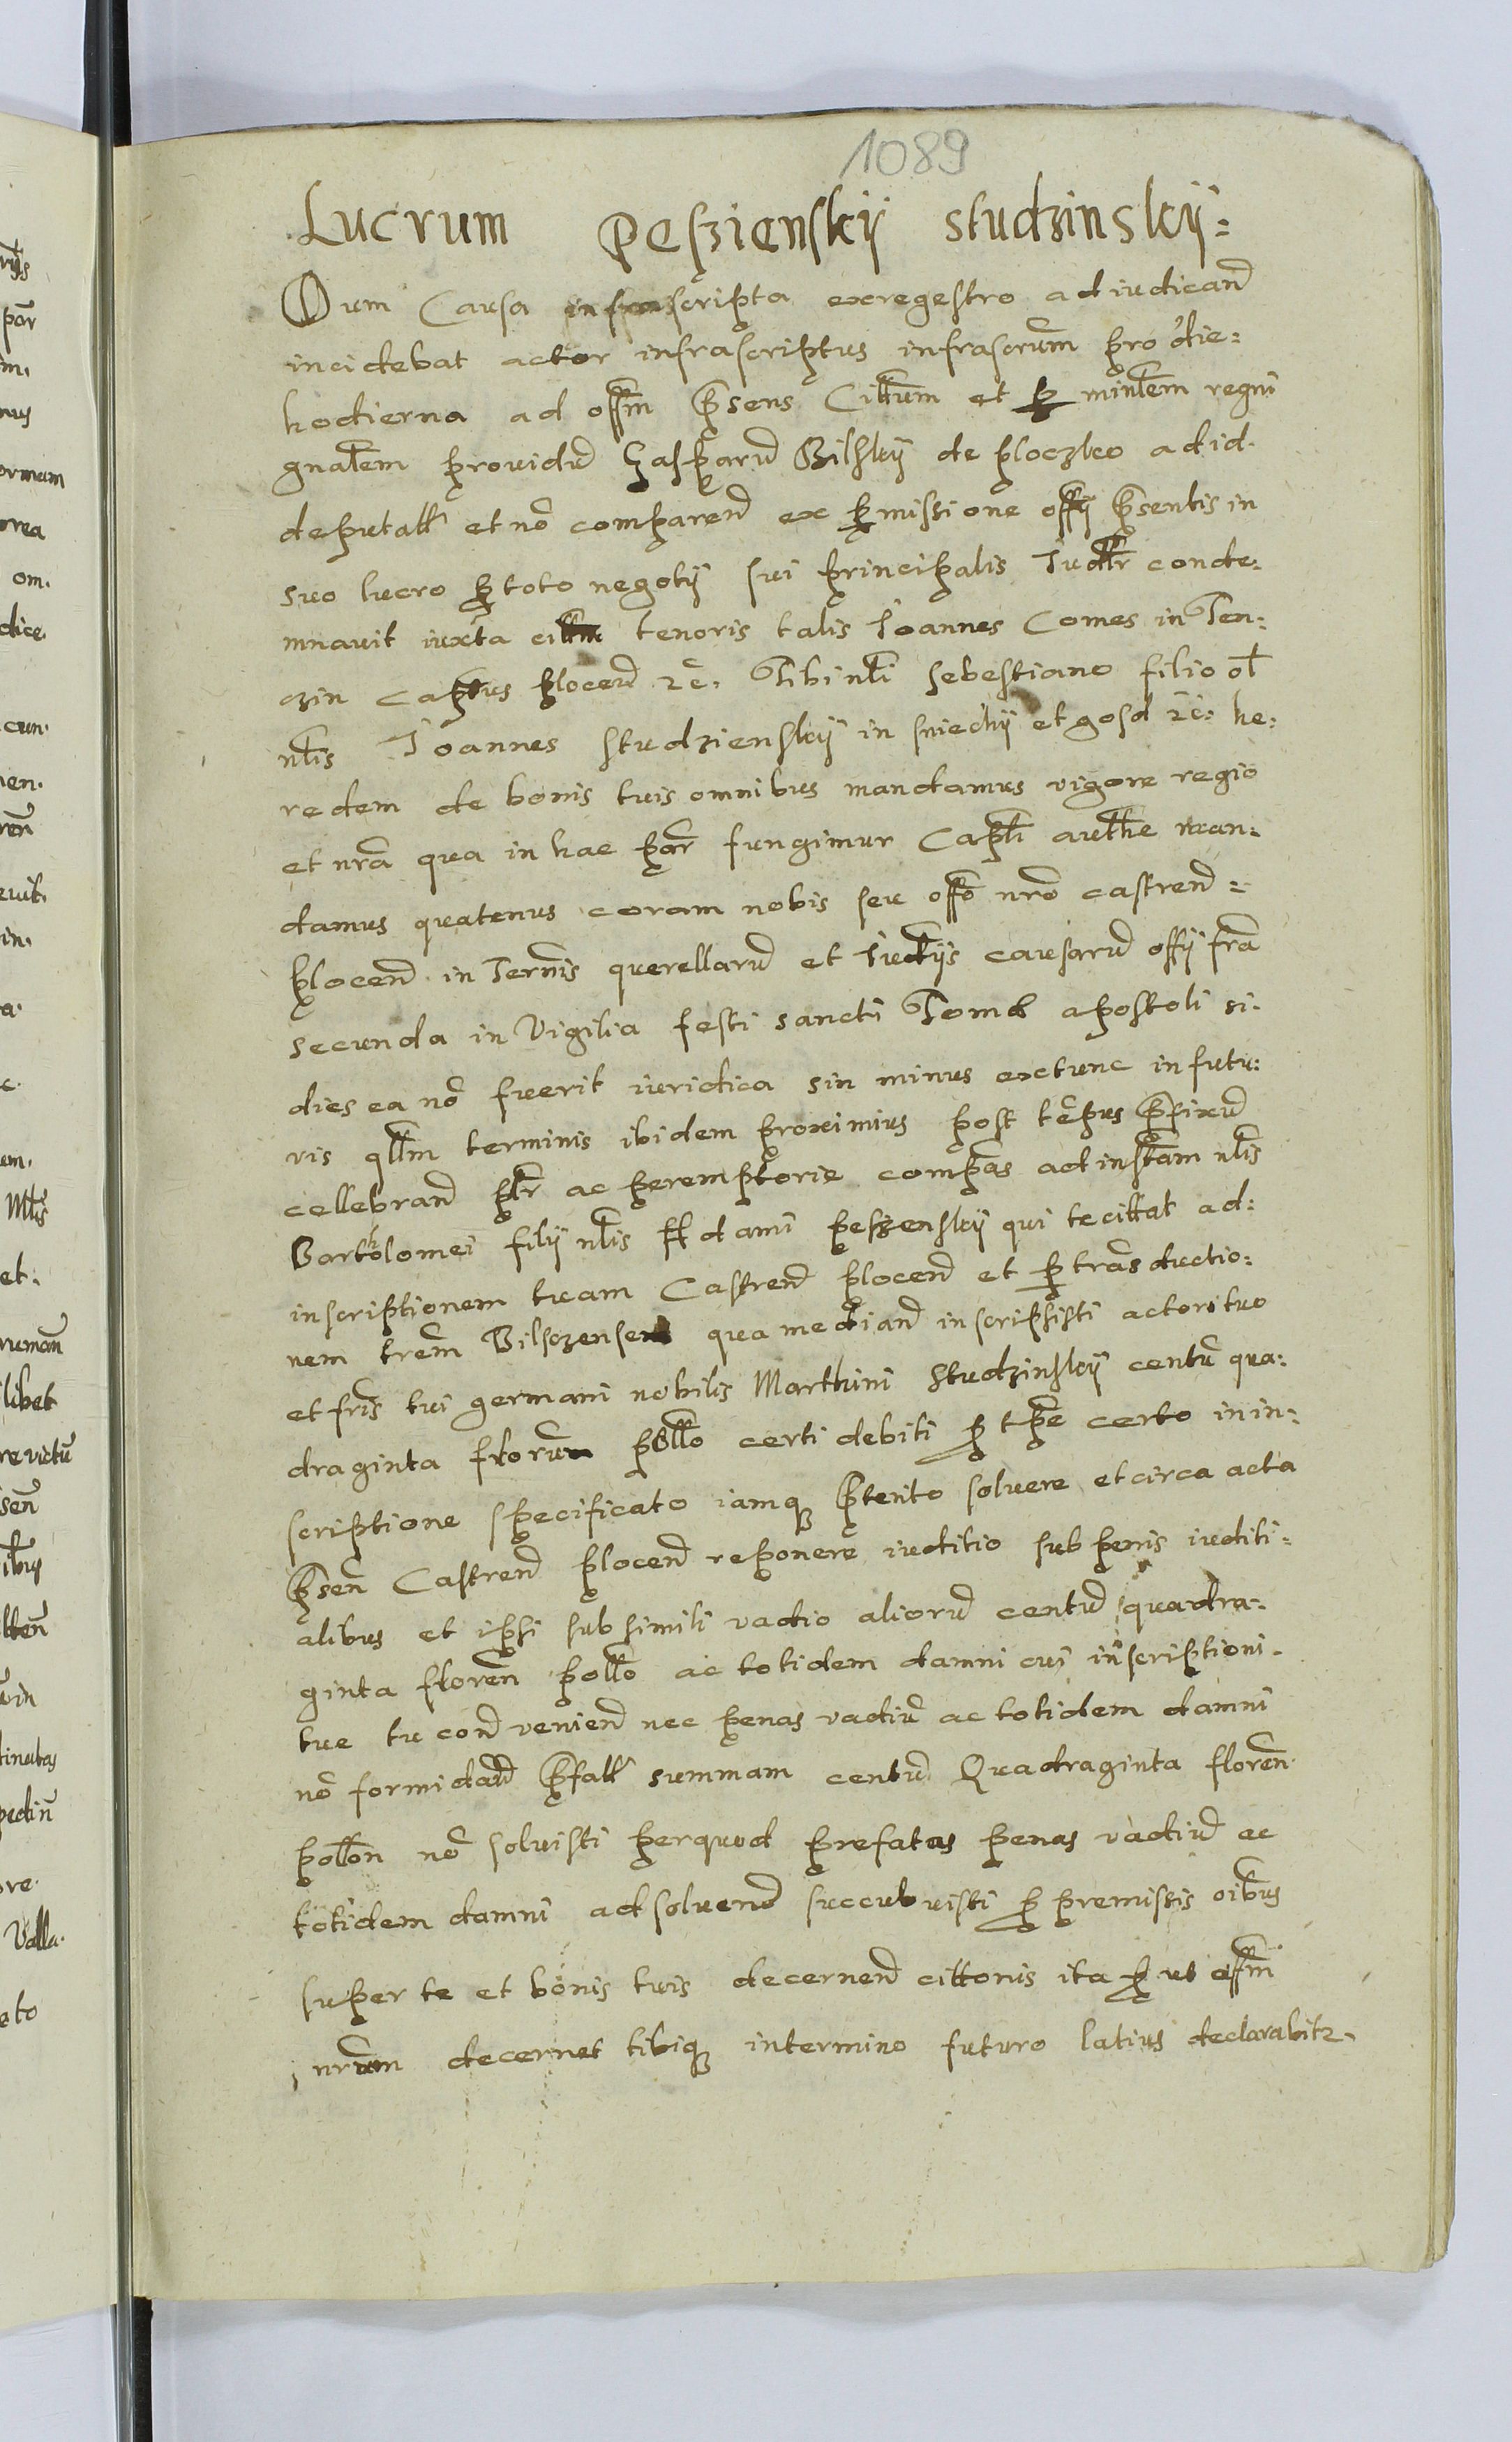 1089
Lucrum Peszienskij Studzinskij
Dum Causa infrascripta exregestro adiudicand
incidebat actor infrascriptus infrascrum pro die
hodierna ad offm psens Cittum et p minlem regni
gnalem prouidu Gasparu Bilskij de ploczko adid
deputatt et no comparen ex pmissione offij psentis in
suo lucro p toto negotij sui principalis Iudtr conde
mnauit iuxta citt tenoris talis Ioannes Comes in Ten
czin Captus plocen 2c. Tibi nli Sebestiano filio ol
nlis Ioannes Studzienskij in sniechij et gosd 2c: he
redem de bonis tuis omnibus mandamus vigore regio
et nra qua in hac par fungimur Capli autthe man
damus quatenus coram nobis seu offo nro castrend
plocen in Ternis querellaru et Iudtijs causaru offij fra
secunda in Vigilia festi sancti Tomae apostoli si
dies ea no fuerit iuridica sin minus extunc in futu
ris qllm terminis ibidem proximius post tepus pfixu
cellebrand ptr ac peremptorie compas ad instam nlis
Bartholomei filij nlis Adami peszenskij qui te cittat ad
inscriptionem tuam Castren plocen et p transductio
nem trem Bilsczensem qua mediand inscripsisti actori tuo
et fris tui germani nobilis Marthini Studzinskij centu qua
draginta florum pollo certi debiti p tpe certo in in
scriptione specificato iamq pterito soluere et circa acta
psen Castren plocen reponere iuditio sub penis iuditi
alibus et ipsi sub simili vadio alioru centu quadra
ginta floren pollo ac totidem damni cui inscriptioni
tue tu con veniend nec penas vadiu ac totidem damni
no formidand pfatt summam centu Quadraginta floren
pollon no soluisti perquod prefatas penas vadiu ac
totidem damni ad soluend succubuisti p premissis oibus
super te et bonis tuis decernend cittonis ita p ut offm
nrum decernet tibiq intermino futuro latius declarabitr